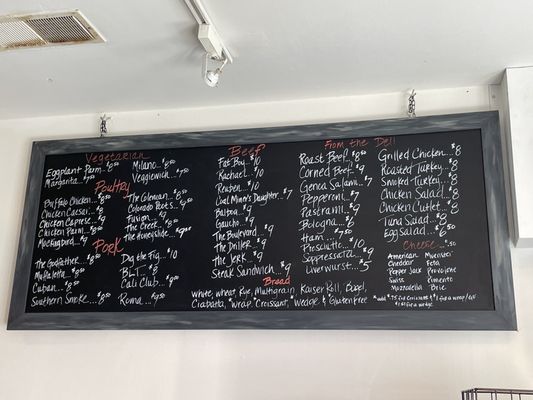 Vegetarian
Eggplant Parm. $8.50
Margarita...$7.50
Milano...$8.50
Veggiewich...$7.50
Poultry
Buffalo Chicken...$8
Chicken Caesar...$8
Chicken Caprese...$9
Chicken Parm...$8
Mockingbird...$9
The Glenean...$8.50
Colorado Poots..
Fusion...$9
The Creek...$8
The Honeyslide...
Pork
The Godfather...$8.50
Muffaletta...$8
Cuban...$8.50
Southern Smoke...$8
Dig the Fig...$10
BLT...$8
Cali Club...$9
Roma...
Beef
Fat Boy...$10
Rachael...$10
Reuben...$10
Coal Miner's Daughter...$7
Balboa...$9
Gaucho...$9
The Boulevard...$9
The Driller...$9
The Jerk...$9
Steak Sandwich...$9
From the Deli
Roast Beef...$9
Corned Beef...$9
Genoa Salami...$7
Pepperoni...$7
Pastrami...$9
Bologna...$6
Ham...$7.50
Prosciutto...$10
Soppressata...$9
Liverwurst...$5
Grilled Chicken...$8
Roasted Turkey...$8
Smoked Turkey...$8
Chicken Salad...$8
Chicken Cutlet...$8
Tuna Salad...$8
Egg Salad...$6
Cheese...$.50
American
Cheddar
Pepper Jack
Swiss
Mozzarella
Muenster
Feta
Provolone
Pimento
Brie
Bread
White, Wheat, Rye, Multigrain, Kaiser Roll, Bagel,
Ciabatta, *Wrap, *Croissant, *Wedge & Gluten Free
*add $.75 for Croissants & $1 for a wrap/GF